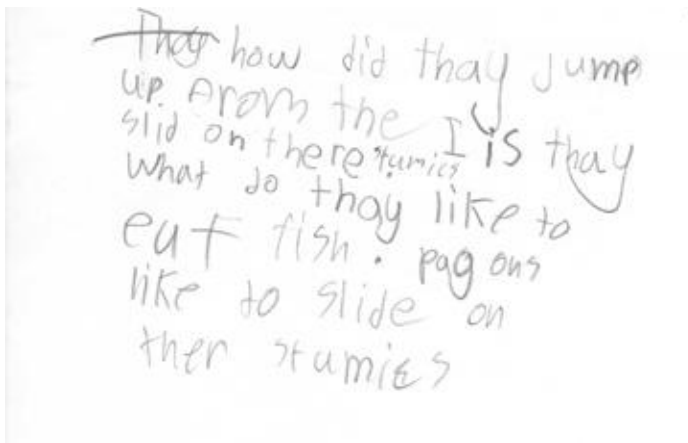 Thay how did thay Jump
up Arom the I is thay
slid on there stumies
What do thay like to
eat fish. pag ons
like to slide on
ther stumies